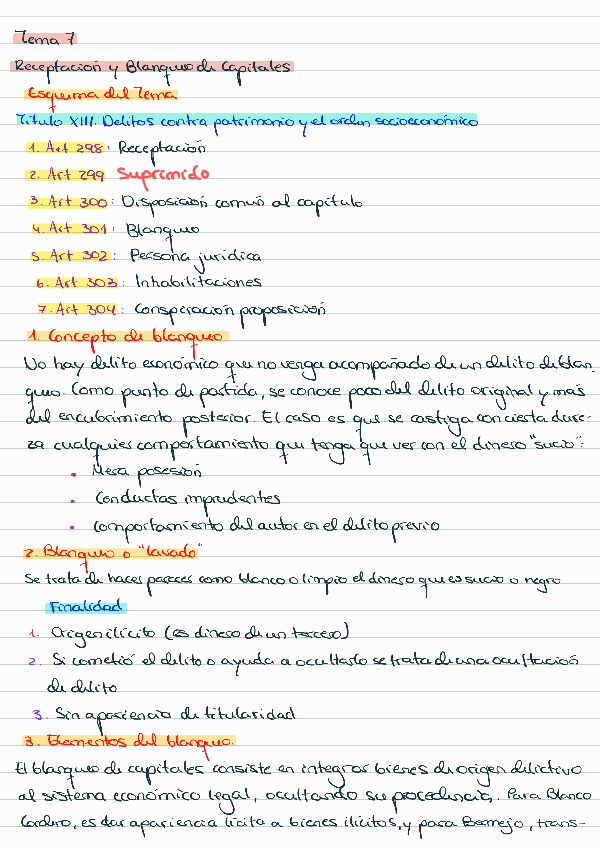 Tema 7
Receptación y Blanqueo de Capitales
Esquema del Tema
Título XIII. Delitos contra patrimonio y el orden socioeconómico
1. Art 298: Receptación
2. Art 299 Suprimido
3. Art 300: Disposición común al capítulo
4. Art 301: Blanqueo
5. Art 302: Persona jurídica
6. Art 303: Inhabilitaciones
7. Art 304: Conspiración proposición
1. Concepto de blanqueo
No hay delito económico que no venga acompañado de un delito de blan-
queo. Como punto de partida, se conoce poco del delito original y más
del encubrimiento posterior. El caso es que se castiga con cierta dure-
za cualquier comportamiento que tenga que ver con el dinero "sucio":
• Mera posesión
• Conductas imprudentes
• Comportamiento del autor en el delito previo
2. Blanqueo o "lavado"
Se trata de hacer parecer como blanco o limpio el dinero que es sucio o negro
Finalidad
1. Origen ilícito (es dinero de un tercero)
2. Si cometió el delito o ayuda a ocultarlo se trata de una ocultación
de delito
3. Sin apariencia de titularidad
3. Elementos del blanqueo.
El blanqueo de capitales consiste en integrar bienes de origen delictivo
al sistema económico legal, ocultando su procedencia. Para Blanco
Cordero, es dar apariencia lícita a bienes ilícitos, y para Bermejo, trans-